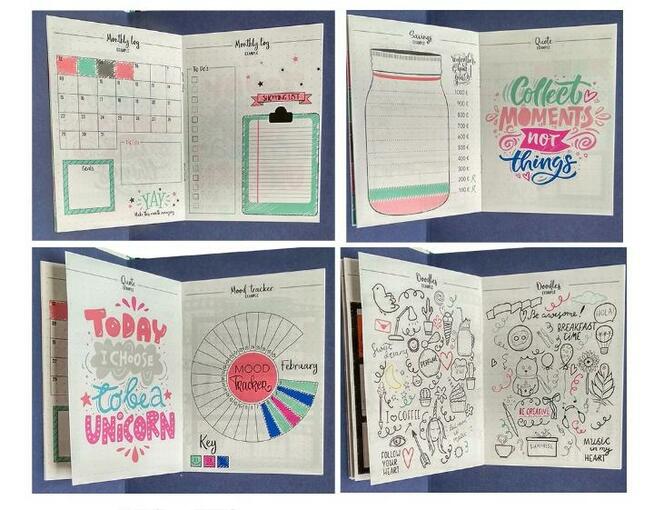 Monthly log
EXAMPLE
Monthly log
EXAMPLE
TO DO's
SHOPPING LIST
Goals
YAY
Make this month amazing
Savings
EXAMPLE
1000 €
900 €
800 €
700 €
600 €
500 €
400 €
300 €
200 €
100 €
Quote
EXAMPLE
Collect
MOMENTS
not
things
Quote
EXAMPLE
TODAY
I CHOOSE
to be a
UNICORN
Mood tracker
EXAMPLE
MOOD
Tracker
February
Key
Doodles
EXAMPLE
I ♡ COFFEE
FOLLOW
YOUR
HEART
Doodles
EXAMPLE
Be awesome!
HOLA!
BREAKFAST
TIME
BE CREATIVE
MUSIC
in my
HEART